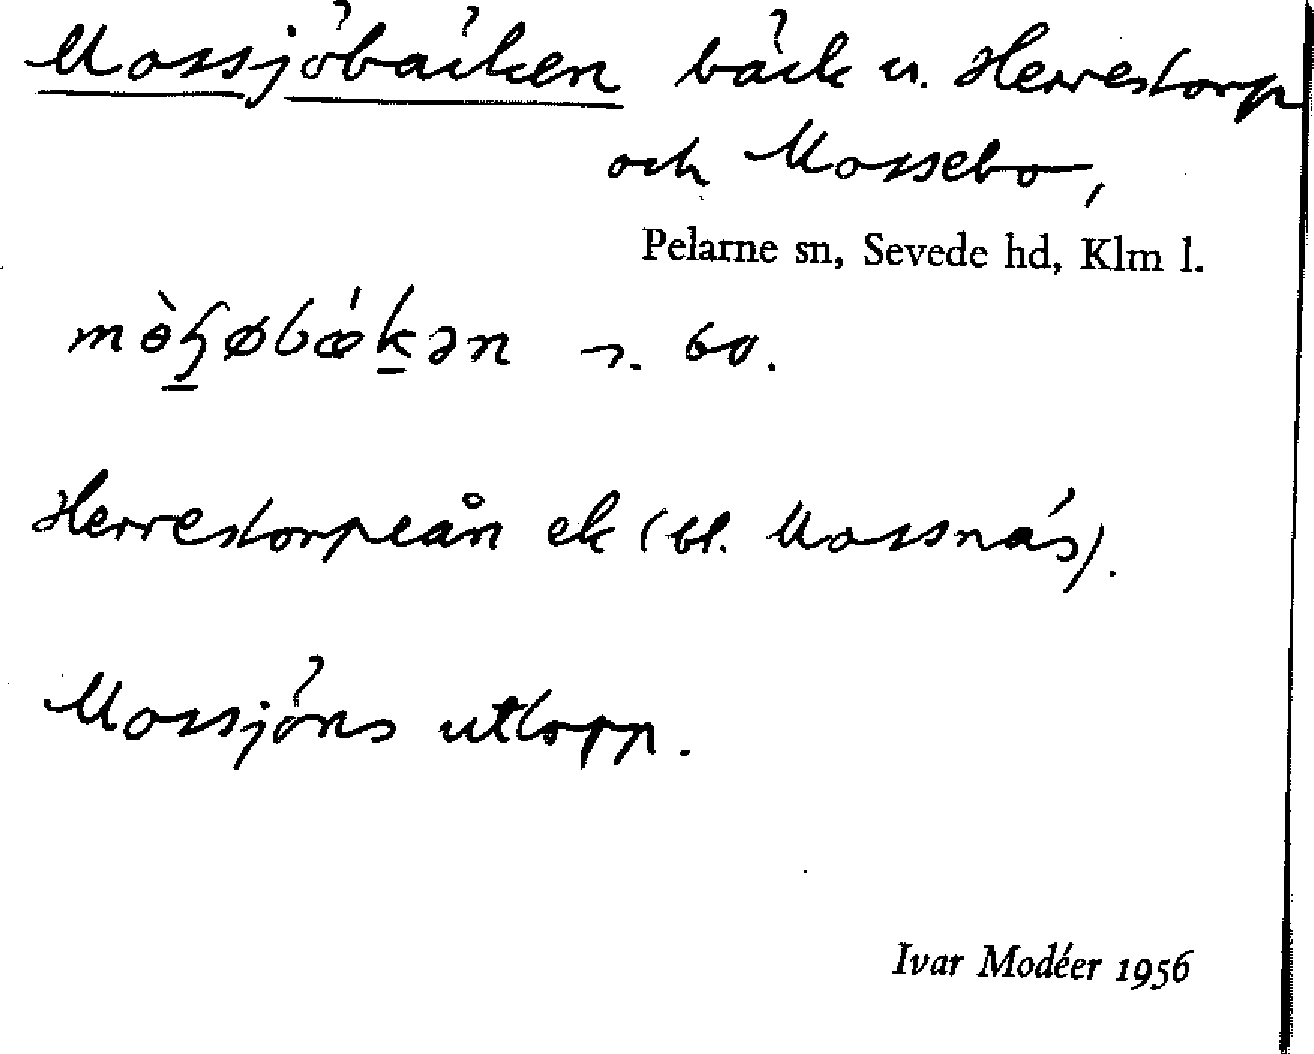 Mossjöbäcken bäck u. Herrestorp
och Mossebo,
Pelarne sn, Sevede hd, Klm l.
bo.
Herrestorpeån ek (bl. Mossnäs).
Mossjöns utlopp.
Ivar Modéer 1956